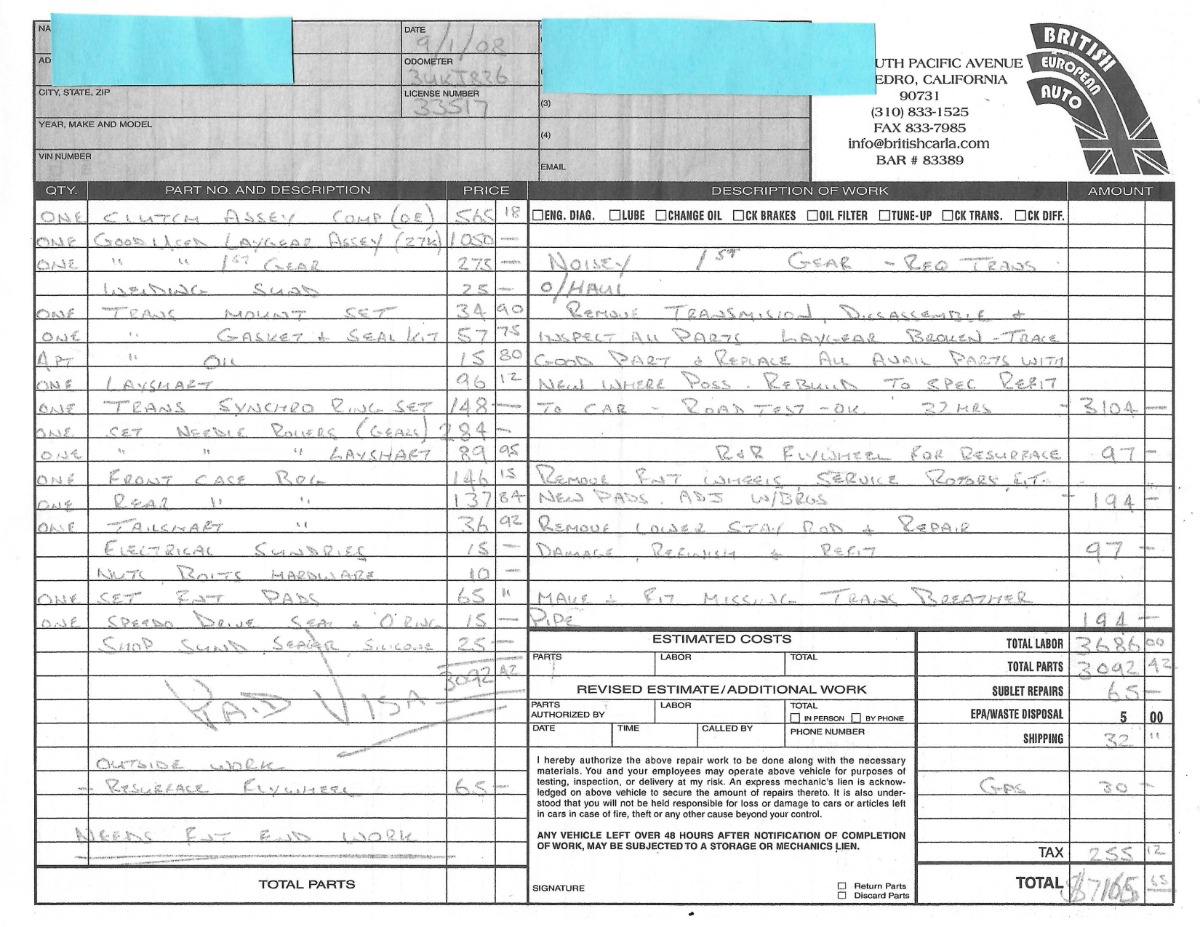 NA
DATE
9/1/08
AD
ODOMETER
34KJ826
CITY, STATE, ZIP
LICENSE NUMBER
33517
(3)
YEAR, MAKE AND MODEL
(4)
VIN NUMBER
EMAIL
UTH PACIFIC AVENUE
EDRO, CALIFORNIA
90731
(310) 833-1525
FAX 833-7985
info@britishcarla.com
BAR # 83389
BRITISH
EUROPEAN
AUTO
QTY. PART NO. AND DESCRIPTION PRICE
ONE CLUTCH ASSEY COMP (OE) 565 18
ONE GOOD USED LAYGEAR ASSEY (27K) 1050 —
ONE " " 1ST GEAR 275 —
WELDING SUND 25 —
ONE TRANS MOUNT SET 34 90
ONE " GASKET & SEAL KIT 57 75
APT " OIL 15 80
ONE LAYSHART 96 12
ONE TRANS SYNCHRO RING SET 148 —
ONE SET NEEDLE ROLLERS (GEARS) 284 —
ONE " " " LAYSHART 89 95
ONE FRONT CASE 146 15
ONE REAR " " 137 84
ONE TAILSHART " 36 92
ELECTRICAL SUNDRIES 15 —
NUTS BOLTS HARDWARE 10 —
ONE SET FNT PADS 65 "
ONE SPEEDO DRIVE SEAL & 'O' RING 15 —
SHOP SUND, SEALER, SILICONE 25 —
3092 42
PAID VISA
OUTSIDE WORK
– RESURFACE FLYWHEEL 65 —
NEEDS FNT END WORK
TOTAL PARTS
DESCRIPTION OF WORK AMOUNT
ENG. DIAG. LUBE CHANGE OIL CK BRAKES OIL FILTER TUNE-UP CK TRANS. CK DIFF.
NOISEY 1ST GEAR – REQ TRANS
O/HAUL
REMOVE TRANSMISION, DISSASSEMBLE &
INSPECT ALL PARTS LAYGEAR BROKEN – TRACE
GOOD PART & REPLACE ALL AVAIL PARTS WITH
NEW WHERE POSS. REBUILD TO SPEC REFIT
TO CAR – ROAD TEST – OK 32 HRS 3104 —
R&R FLYWHEEL FOR RESURFACE 97 —
REMOVE FNT WHEELS, SERVICE ROTORS, FIT
NEW PADS. ADJ W/BRGS 194 —
REMOVE LOWER STAY ROD & REPAIR
DAMAGE, REFINISH & REFIT 97 —
MAKE & FIT MISSING TRANS BREATHER
PIPE 194 —
ESTIMATED COSTS
PARTS LABOR TOTAL
REVISED ESTIMATE/ADDITIONAL WORK
PARTS LABOR TOTAL
AUTHORIZED BY IN PERSON BY PHONE
DATE TIME CALLED BY PHONE NUMBER
I hereby authorize the above repair work to be done along with the necessary
materials. You and your employees may operate above vehicle for purposes of
testing, inspection, or delivery at my risk. An express mechanic's lien is acknow-
ledged on above vehicle to secure the amount of repairs thereto. It is also under-
stood that you will not be held responsible for loss or damage to cars or articles left
in cars in case of fire, theft or any other cause beyond your control.
ANY VEHICLE LEFT OVER 48 HOURS AFTER NOTIFICATION OF COMPLETION
OF WORK, MAY BE SUBJECTED TO A STORAGE OR MECHANICS LIEN.
SIGNATURE
Return Parts
Discard Parts
TOTAL LABOR 3686 00
TOTAL PARTS 3092 42
SUBLET REPAIRS 65 —
EPA/WASTE DISPOSAL 5 00
SHIPPING 32 "
GAS 30 —
TAX 255 12
TOTAL $7165 55